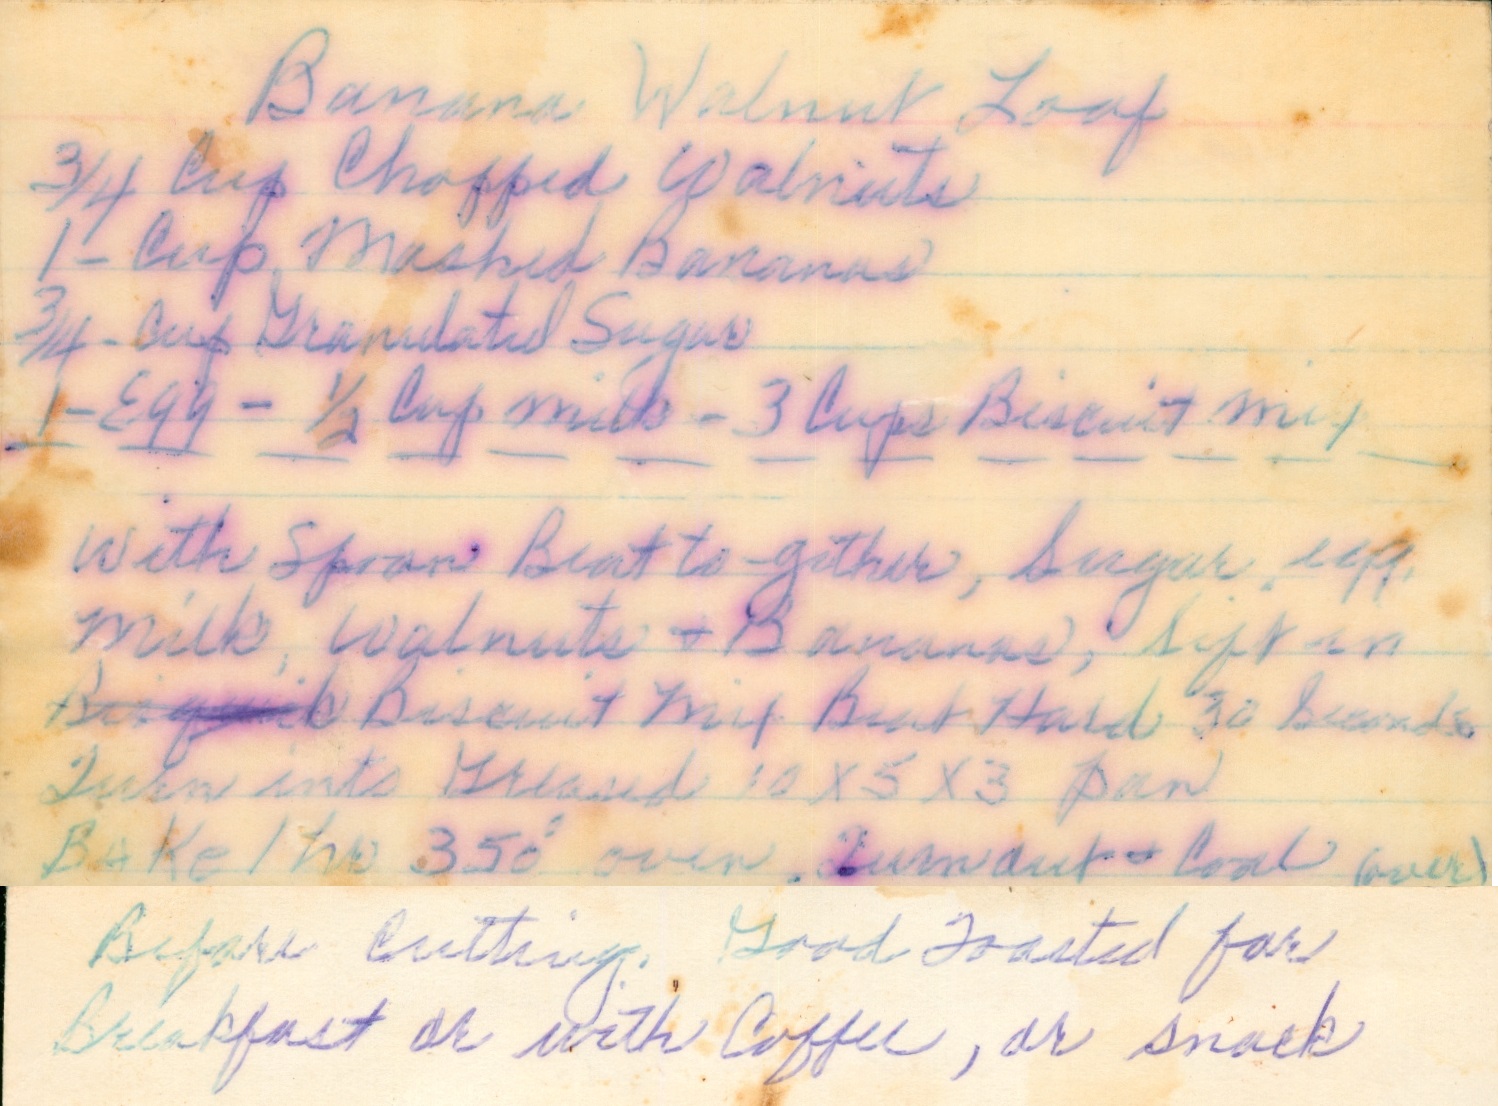 Banana Walnut Loaf
3/4 Cup Chopped Walnuts
1 - Cup Mashed Bananas
3/4 - Cup Granulated Sugar
1 - Egg - 1/2 Cup milk - 3 Cups Biscuit mix
With Spoon Beat to-gether, Sugar, egg,
Milk, Walnuts + Bananas, Sift in
Bisquick Biscuit Mix Beat Hard 30 Seconds.
Turn into Greased 10 X 5 X 3 pan
Bake 1 hr 350° oven. Turn out + Cool (over)
Before Cutting. Good Toasted for
Breakfast or with Coffee, or snack